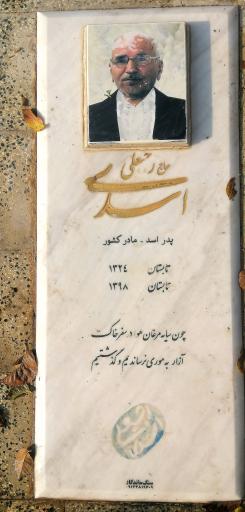 حاج رجبعلی
اسدی
پدر اسد - مادر کشور
تابستان ۱۳۲۴
تابستان ۱۳۹۸
چون سایه مرغان هوا در سفر خاک
آزار به موری نرساندیم و گذشتیم